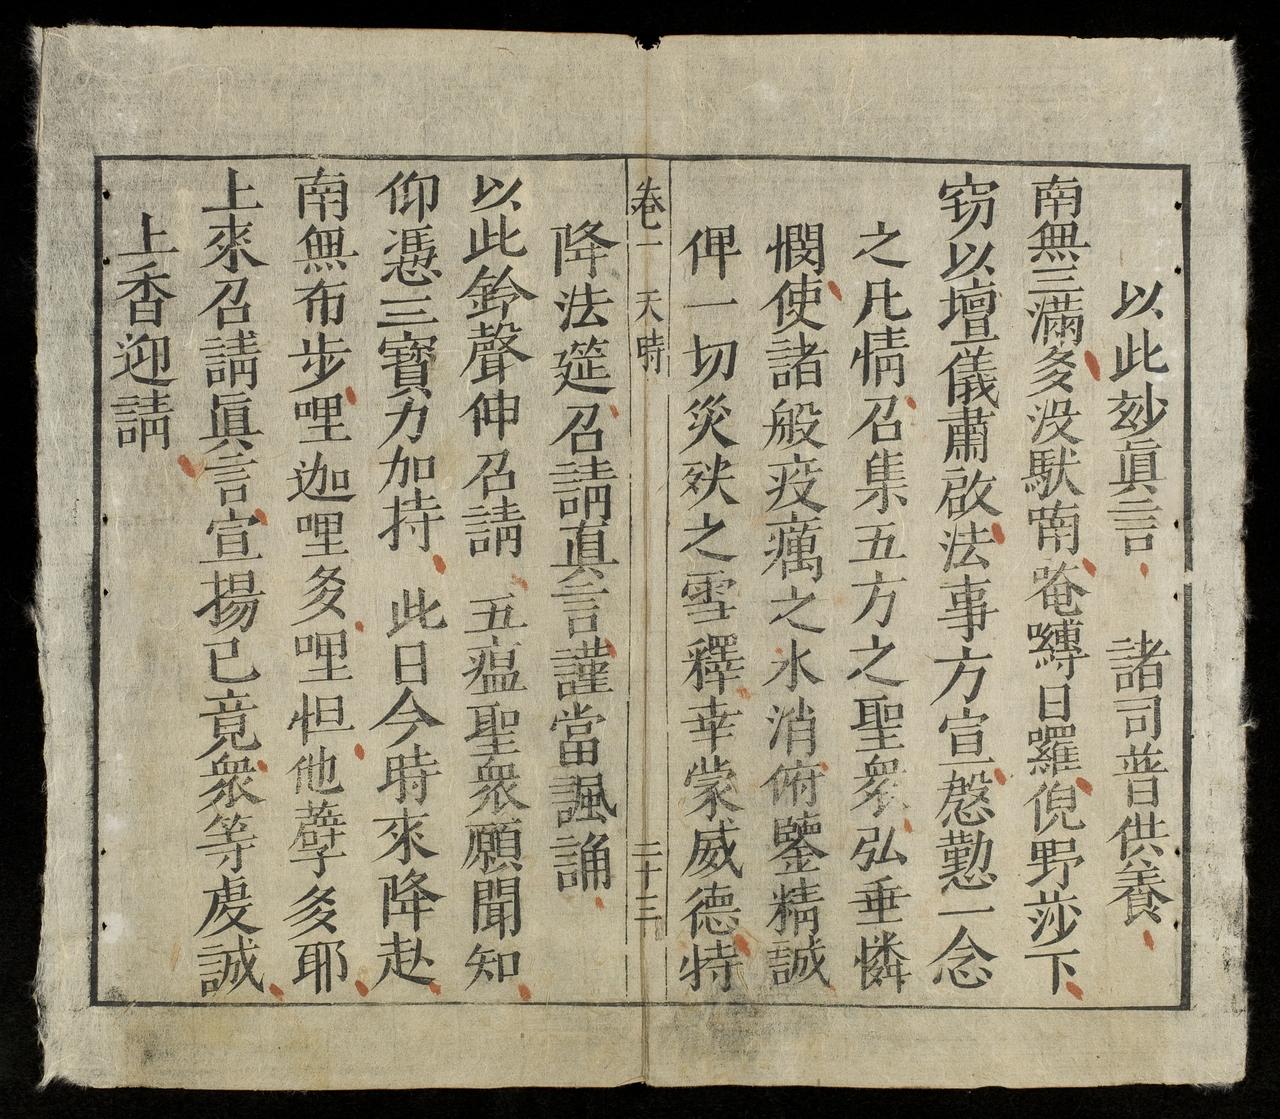 以此玅眞言　諸司普供養
南無三滿㝖没馱喃唵嚩日囉倪野莎下
窃以壇儀肅啟法事方宣慇懃一念
之凡情召集五方之聖衆弘垂憐
憫使諸般疫癘之水消俯鑒精誠
俾一切災殃之雪釋幸蒙威德特
卷一　天時　二十三
降法筵召請眞言謹當諷誦
以此鈴聲伸召請　五瘟聖衆願聞知
仰憑三寶力加持　此日今時來降赴
南無布步哩迦哩㝖哩怛他蘖㝖耶
上來召請眞言宣揚已竟衆等虔誠
上香迎請